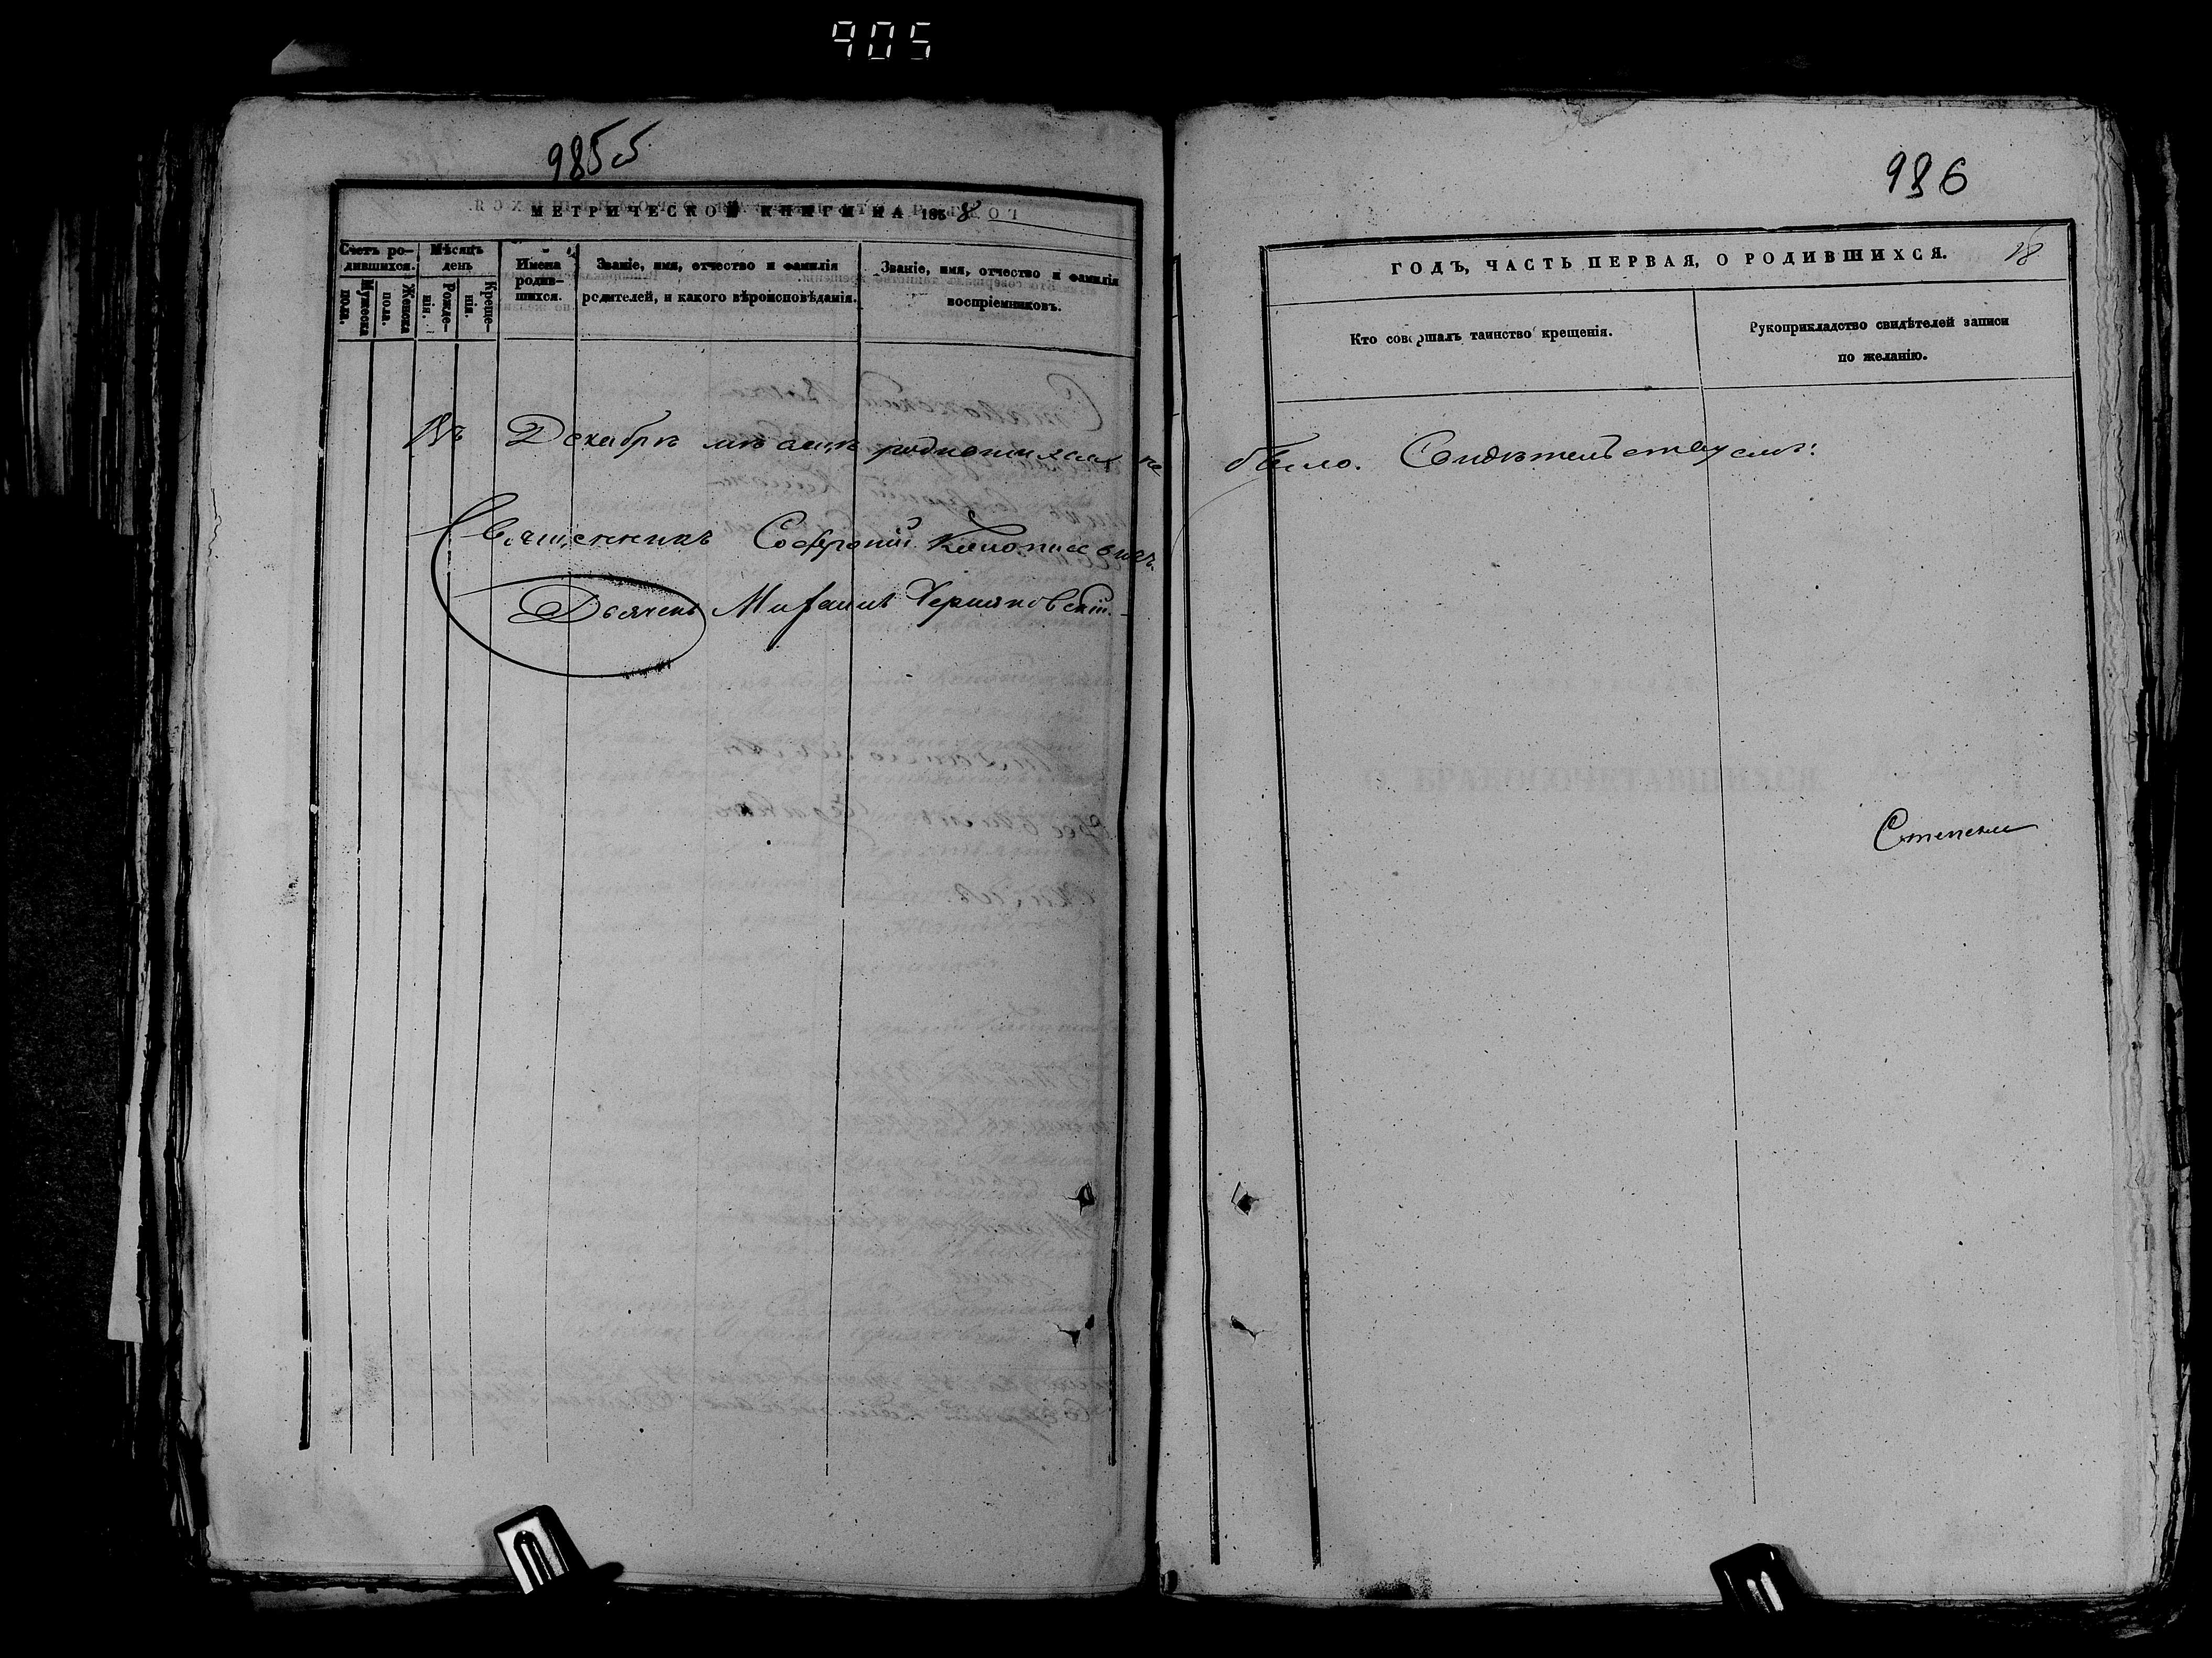 905
985 об
МЕТРИЧЕСКОЙ КНИГИ НА 1858
Счетъ родившихся.
Мужеска пола.
Женска пола.
Мѣсяцъ день
Рожденія.
Крещенія.
Имена родившихся.
Званіе, имя, отчество и фамилія
родителей, и какого вѣроисповѣданія.
Званіе, имя, отчество и фамилія
воспріемниковъ.
Въ Декабрѣ мѣсяцѣ родившихся не
Священникъ Софроній
Дьячекъ Михаилъ Черняковскій.
986
ГОДЪ, ЧАСТЬ ПЕРВАЯ, О РОДИВШИХСЯ.
18
Кто совершалъ таинство крещенія.
Рукоприкладство свидѣтелей записи
по желанію.
было. Свидѣтельствуемъ:
Степени